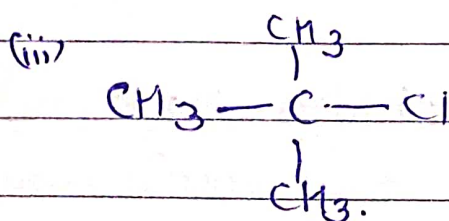 (iii) CH3
CH3 — C — Cl
CH3.